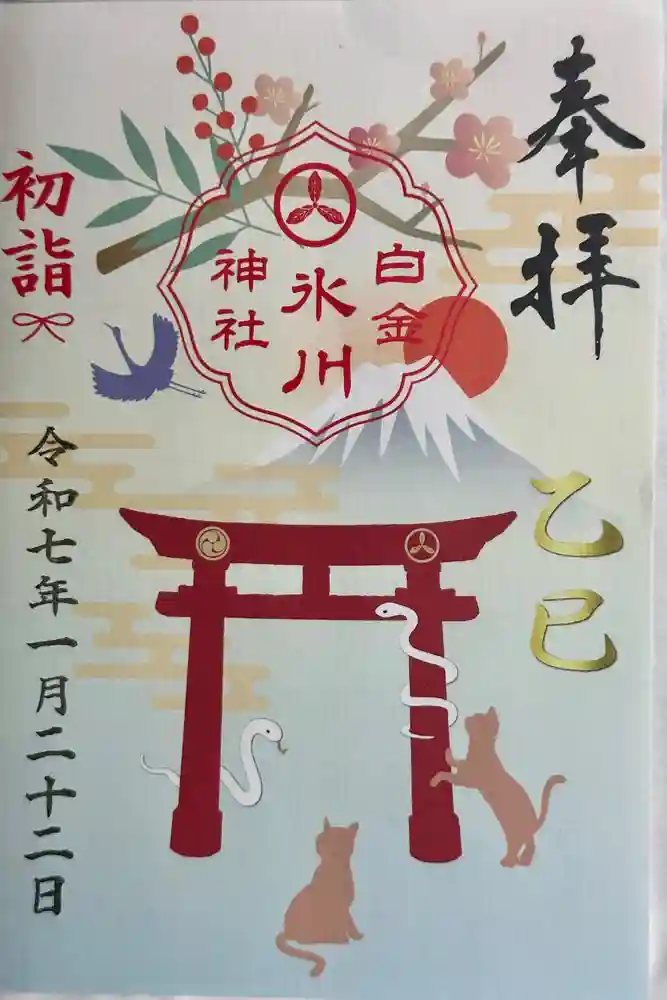 奉拝
乙巳
白金
氷川
神社
初詣
令和七年一月二十二日